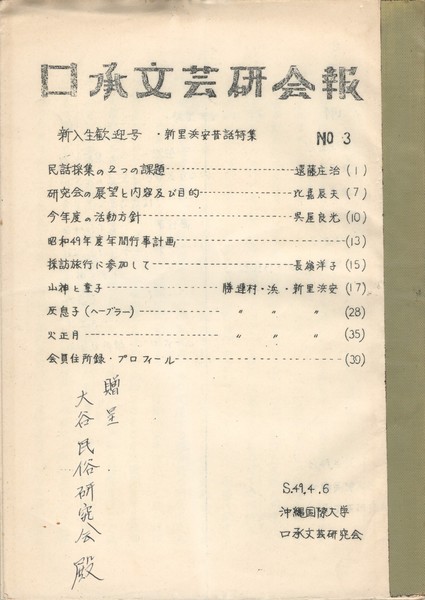 口承文芸研会報
新入生歓迎号 ・新里浜安昔話特集 NO 3
民話採集の2つの課題 ---------- 遠藤庄治 (1)
研究会の展望と内容及び目的 ---------- 比嘉辰夫 (7)
今年度の活動方針 ---------- 呉屋良光 (10)
昭和49年度年間行事計画 ---------- (13)
採訪旅行に参加して ---------- 長嶺洋子 (15)
山神と童子 ---------- 勝連村・浜・新里浜安 (17)
灰息子(ヘーブラー) ---------- 〃 〃 〃 (28)
火正月 ---------- 〃 〃 〃 (35)
会員住所録・プロフィール ---------- (39)
贈呈
大谷民俗研究会殿
S.49.4.6
沖縄国際大学
口承文芸研究会